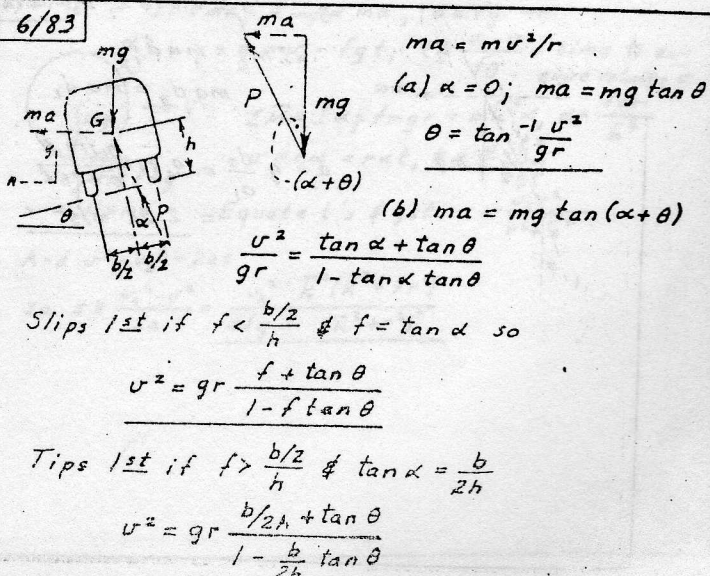 6/83
mg
ma
G
h
n
θ
α
P
b/2 b/2
ma
P
mg
(α+θ)
ma = mv²/r
(a) α = 0; ma = mg tan θ
θ = tan⁻¹ v²/gr
(b) ma = mg tan (α+θ)
v²/gr = (tan α + tan θ)/(1 - tan α tan θ)
Slips 1st if f < (b/2)/h & f = tan α so
v² = gr (f + tan θ)/(1 - f tan θ)
Tips 1st if f > (b/2)/h & tan α = b/2h
v² = gr (b/2h + tan θ)/(1 - b/2h tan θ)